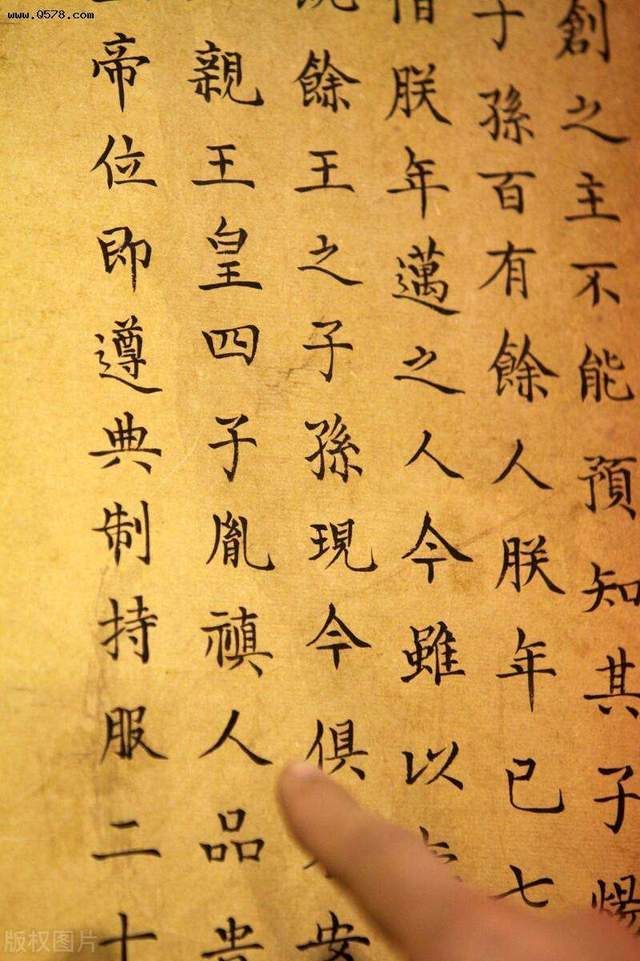 www.Q578.com
創之主不能預知其子煬
子孫百有餘人朕年已七
朕年邁之人今雖以
餘王之子孫現今俱安
親王皇四子胤禛人品貴
帝位即遵典制持服二十
版权图片